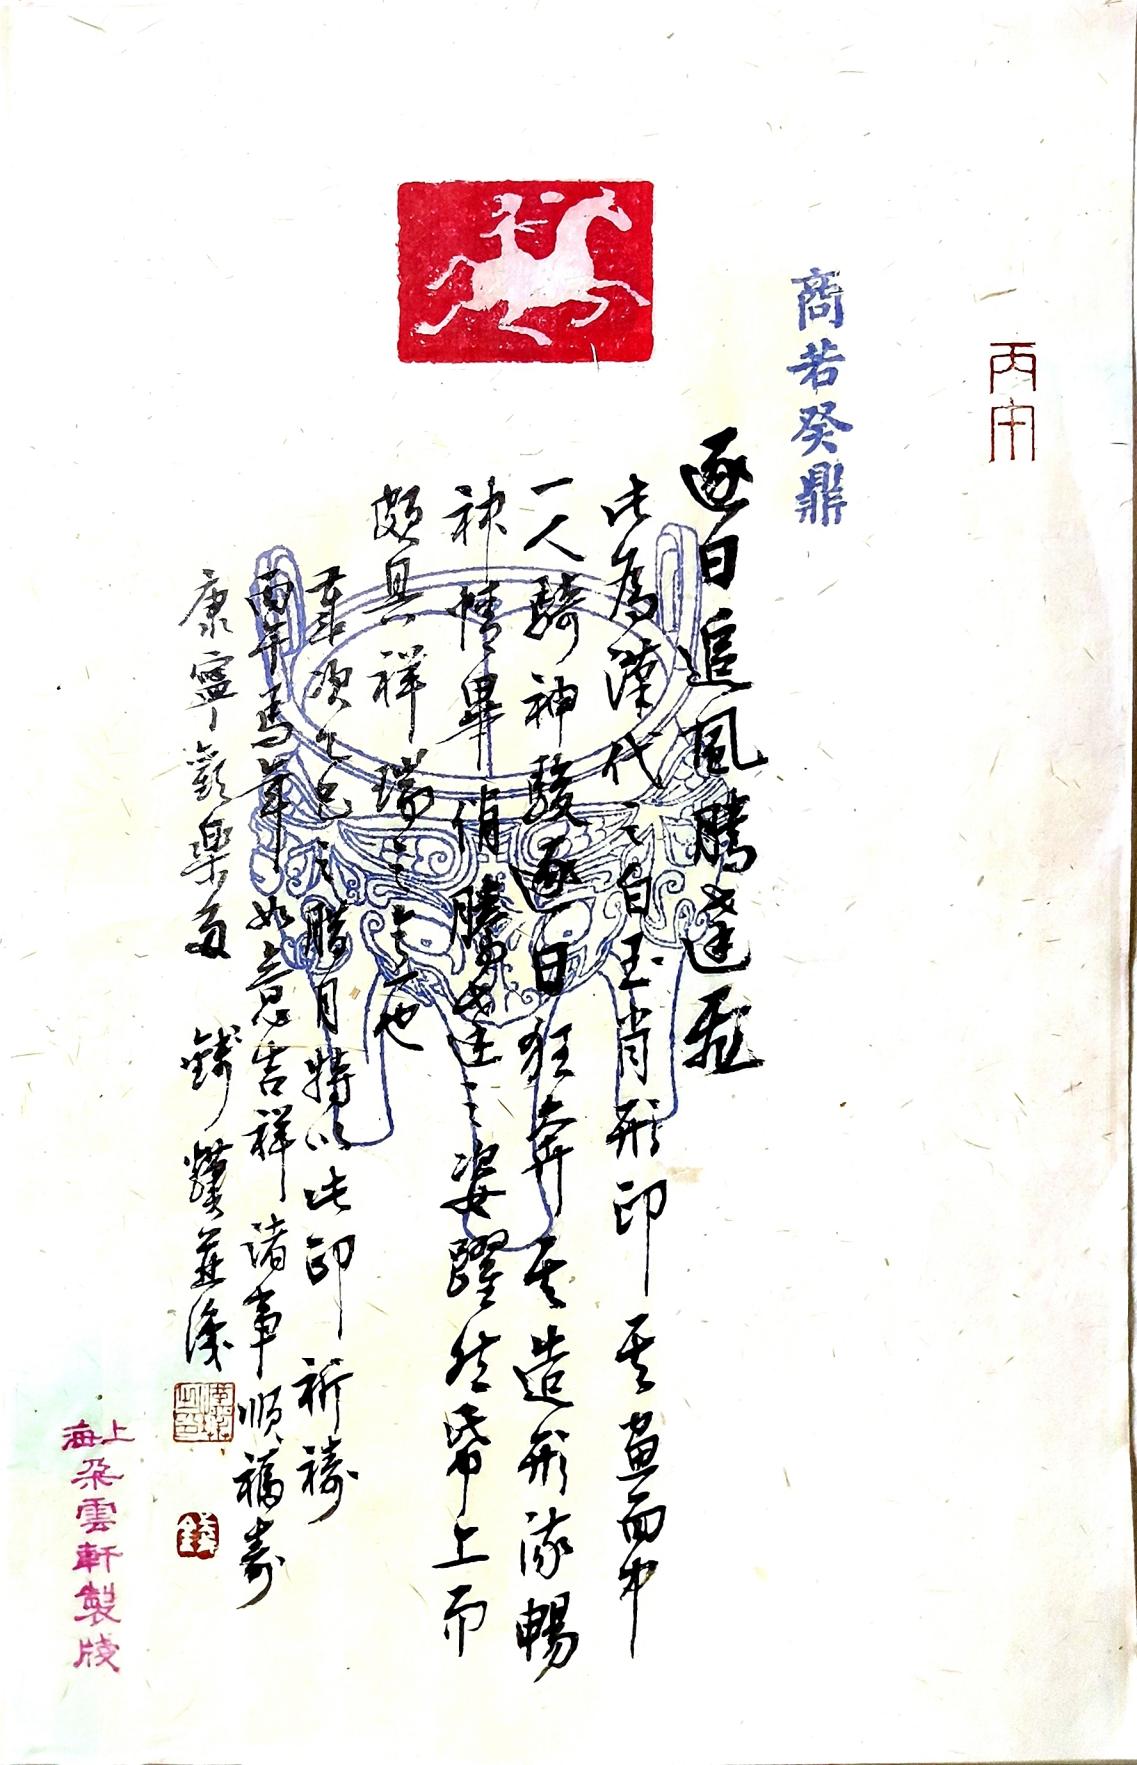 丙午
商若癸鼎
逐日追風騰達飛
此為漢代之白玉肖形印其畫面中
一人騎神駿逐日狂奔其造形流暢
神情畢俏騰達之姿躍然帋上而
頗具祥瑞之意也
歲次乙巳之腊月特以此印祈禱
丙午馬年如意吉祥諸事順福壽
康寧歡樂多 錢漢並識
錢
上海朵雲軒製牋